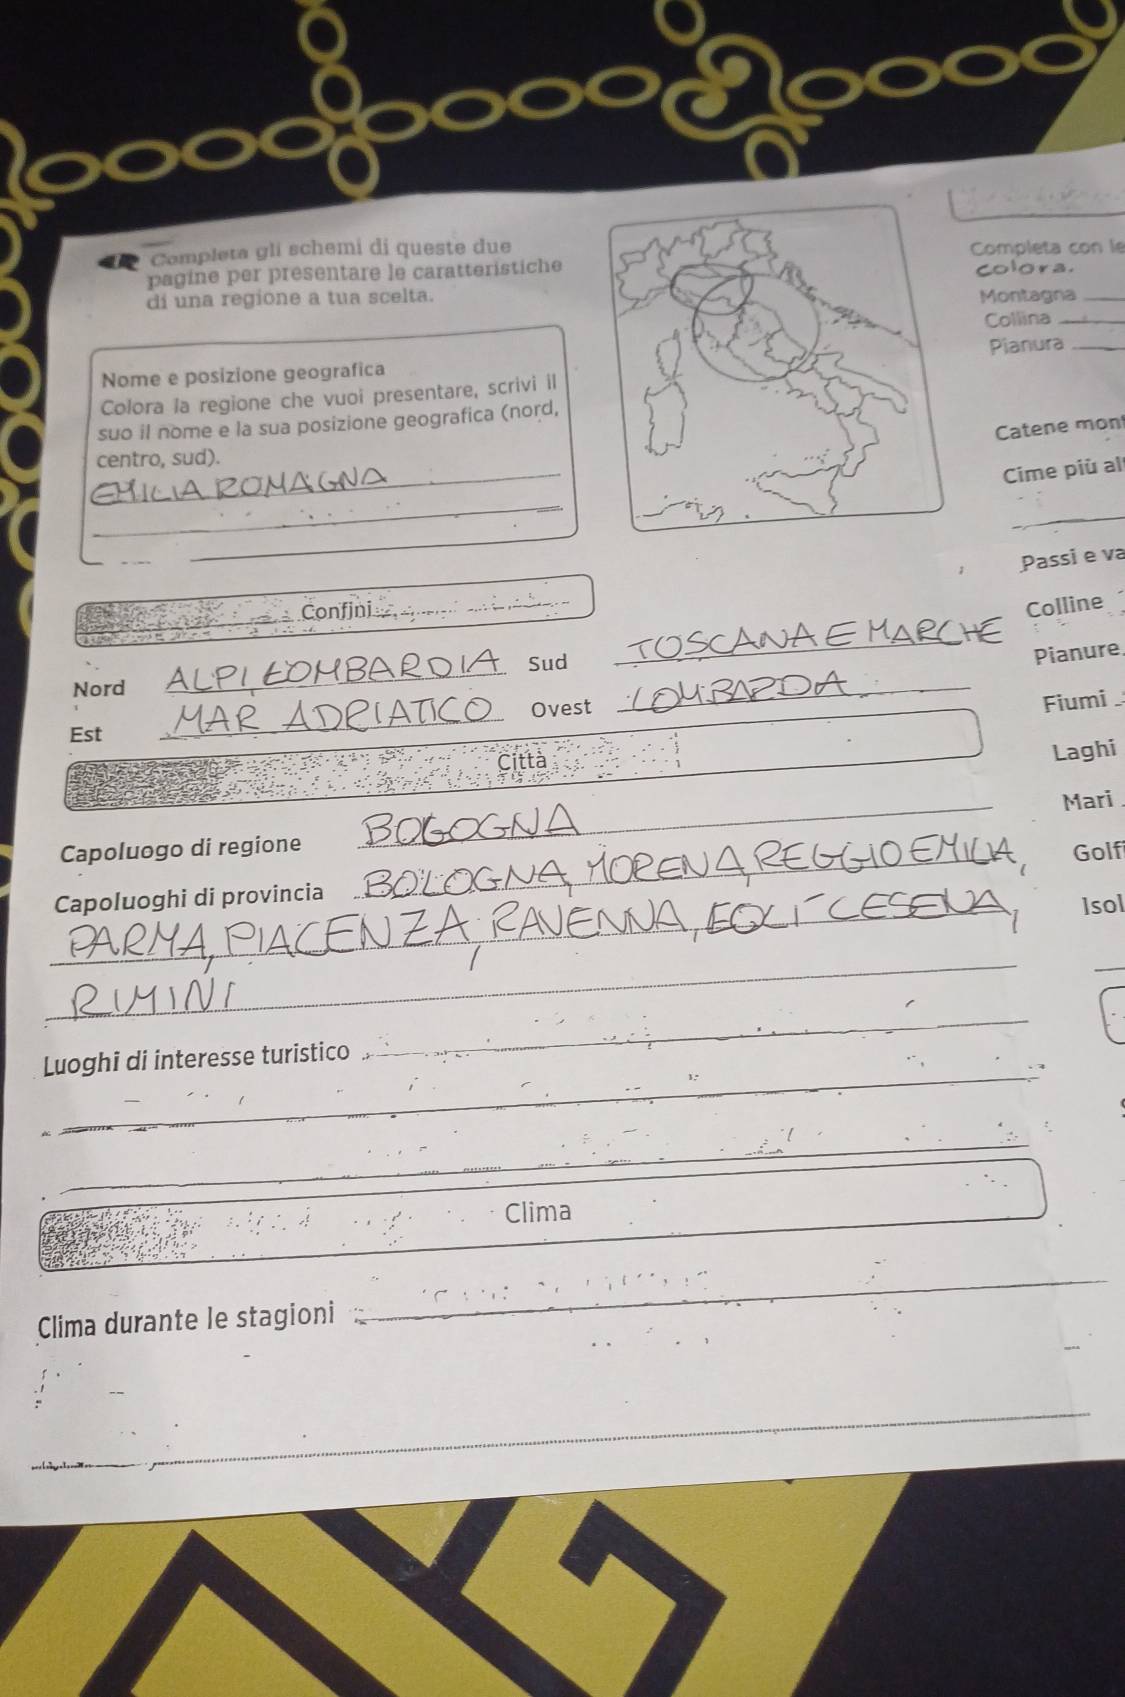 Completa gli schemi di queste due
pagine per presentare le caratteristiche
di una regione a tua scelta.
Nome e posizione geografica
Colora la regione che vuoi presentare, scrivi il
suo il nome e la sua posizione geografica (nord,
centro, sud).
EMILIA ROMAGNA
Confini
Nord ALPI LOMBARDIA Sud TOSCANA E MARCHE
Est MAR ADRIATICO Ovest LOMBARDIA
Città
Capoluogo di regione BOGOGNA
Capoluoghi di provincia BOLOGNA, MORENA, REGGIO EMILIA,
PARMA, PIACENZA, RAVENNA, FOLI CESENA,
RIMINI
Luoghi di interesse turistico
Clima
Clima durante le stagioni
Completa con le
colora.
Montagna
Collina
Pianura
Catene mont
Cime più al
Passi e va
Colline
Pianure
Fiumi
Laghi
Mari
Golfi
Isol